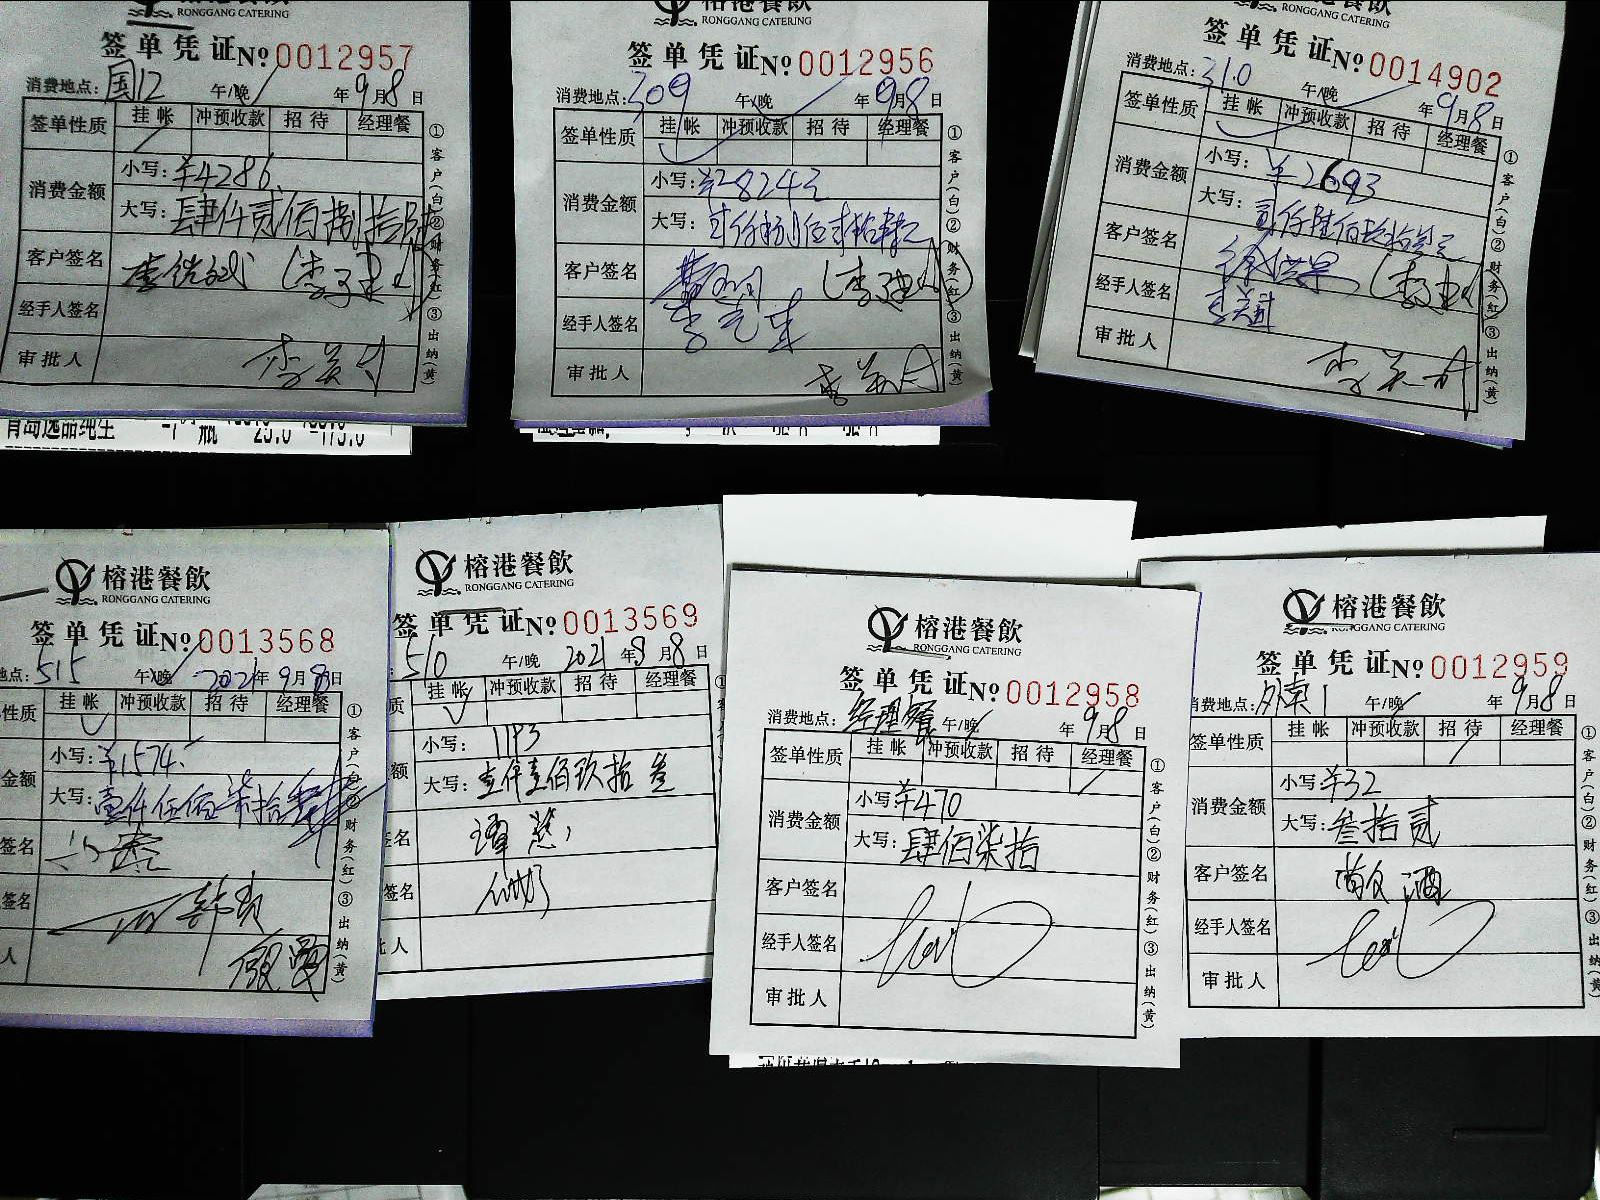 榕港餐飲
RONGGANG CATERING
签单凭证 No 0012957
消费地点: 国12 午/晚 年9月8日
签单性质 挂帐 冲预收款 招待 经理餐
消费金额 小写: ¥4286
大写: 肆仟贰佰捌拾陆
客户签名
经手人签名
审批人
①客户(白)②财务(红)③出纳(黄)
青岛逸品纯生
榕港餐飲
RONGGANG CATERING
签单凭证 No 0012956
消费地点: 309 午/晚 年9月8日
签单性质 挂帐 冲预收款 招待 经理餐
消费金额 小写: ¥2824元
大写: 贰仟捌佰贰拾肆元
客户签名
经手人签名
审批人
①客户(白)②财务(红)③出纳(黄)
榕港餐飲
RONGGANG CATERING
签单凭证 No 0014902
消费地点: 310 午/晚 年9月8日
签单性质 挂帐 冲预收款 招待 经理餐
消费金额 小写: ¥2693
大写: 贰仟陆佰玖拾叁元
客户签名
经手人签名
审批人
①客户(白)②财务(红)③出纳(黄)
榕港餐飲
RONGGANG CATERING
签单凭证 No 0013568
地点: 515 午/晚 2021年9月8日
性质 挂帐 冲预收款 招待 经理餐
金额 小写: ¥1574
大写: 壹仟伍佰柒拾肆
签名
签名
人
①客户(白)②财务(红)③出纳(黄)
榕港餐飲
RONGGANG CATERING
签单凭证 No 0013569
: 510 午/晚 2021年9月8日
质 挂帐 冲预收款 招待 经理餐
额 小写: 1193
大写: 壹仟壹佰玖拾叁
签名
签名
批人
榕港餐飲
RONGGANG CATERING
签单凭证 No 0012958
消费地点: 经理餐 午/晚 年9月8日
签单性质 挂帐 冲预收款 招待 经理餐
消费金额 小写: ¥470
大写: 肆佰柒拾
客户签名
经手人签名
审批人
①客户(白)②财务(红)③出纳(黄)
榕港餐飲
RONGGANG CATERING
签单凭证 No 0012959
消费地点: 午/晚 年9月8日
签单性质 挂帐 冲预收款 招待 经理餐
消费金额 小写: ¥32
大写: 叁拾贰
客户签名
经手人签名
审批人
①客户(白)②财务(红)③出纳(黄)